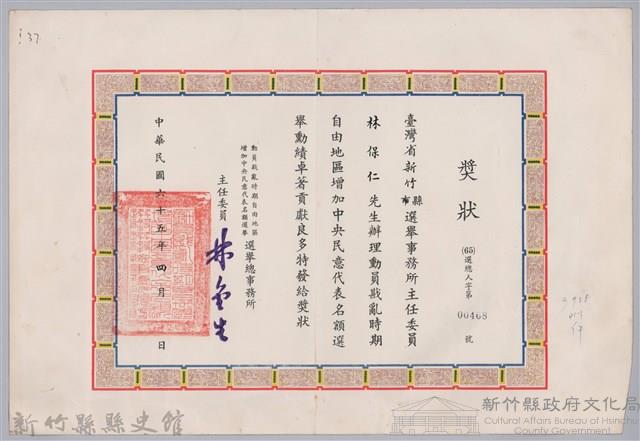 獎狀
(65)選總人字第00468號
臺灣省新竹縣市選舉事務所主任委員
林保仁先生辦理動員戡亂時期
自由地區增加中央民意代表名額選
舉勳績卓著貢獻良多特發給獎狀
動員戡亂時期自由地區
增加中央民意代表名額選舉
選舉總事務所
主任委員
林金生
中華民國六十五年四月 日
37
新竹縣縣史館
新竹縣政府文化局
Cultural Affairs Bureau of Hsinchu
County Government